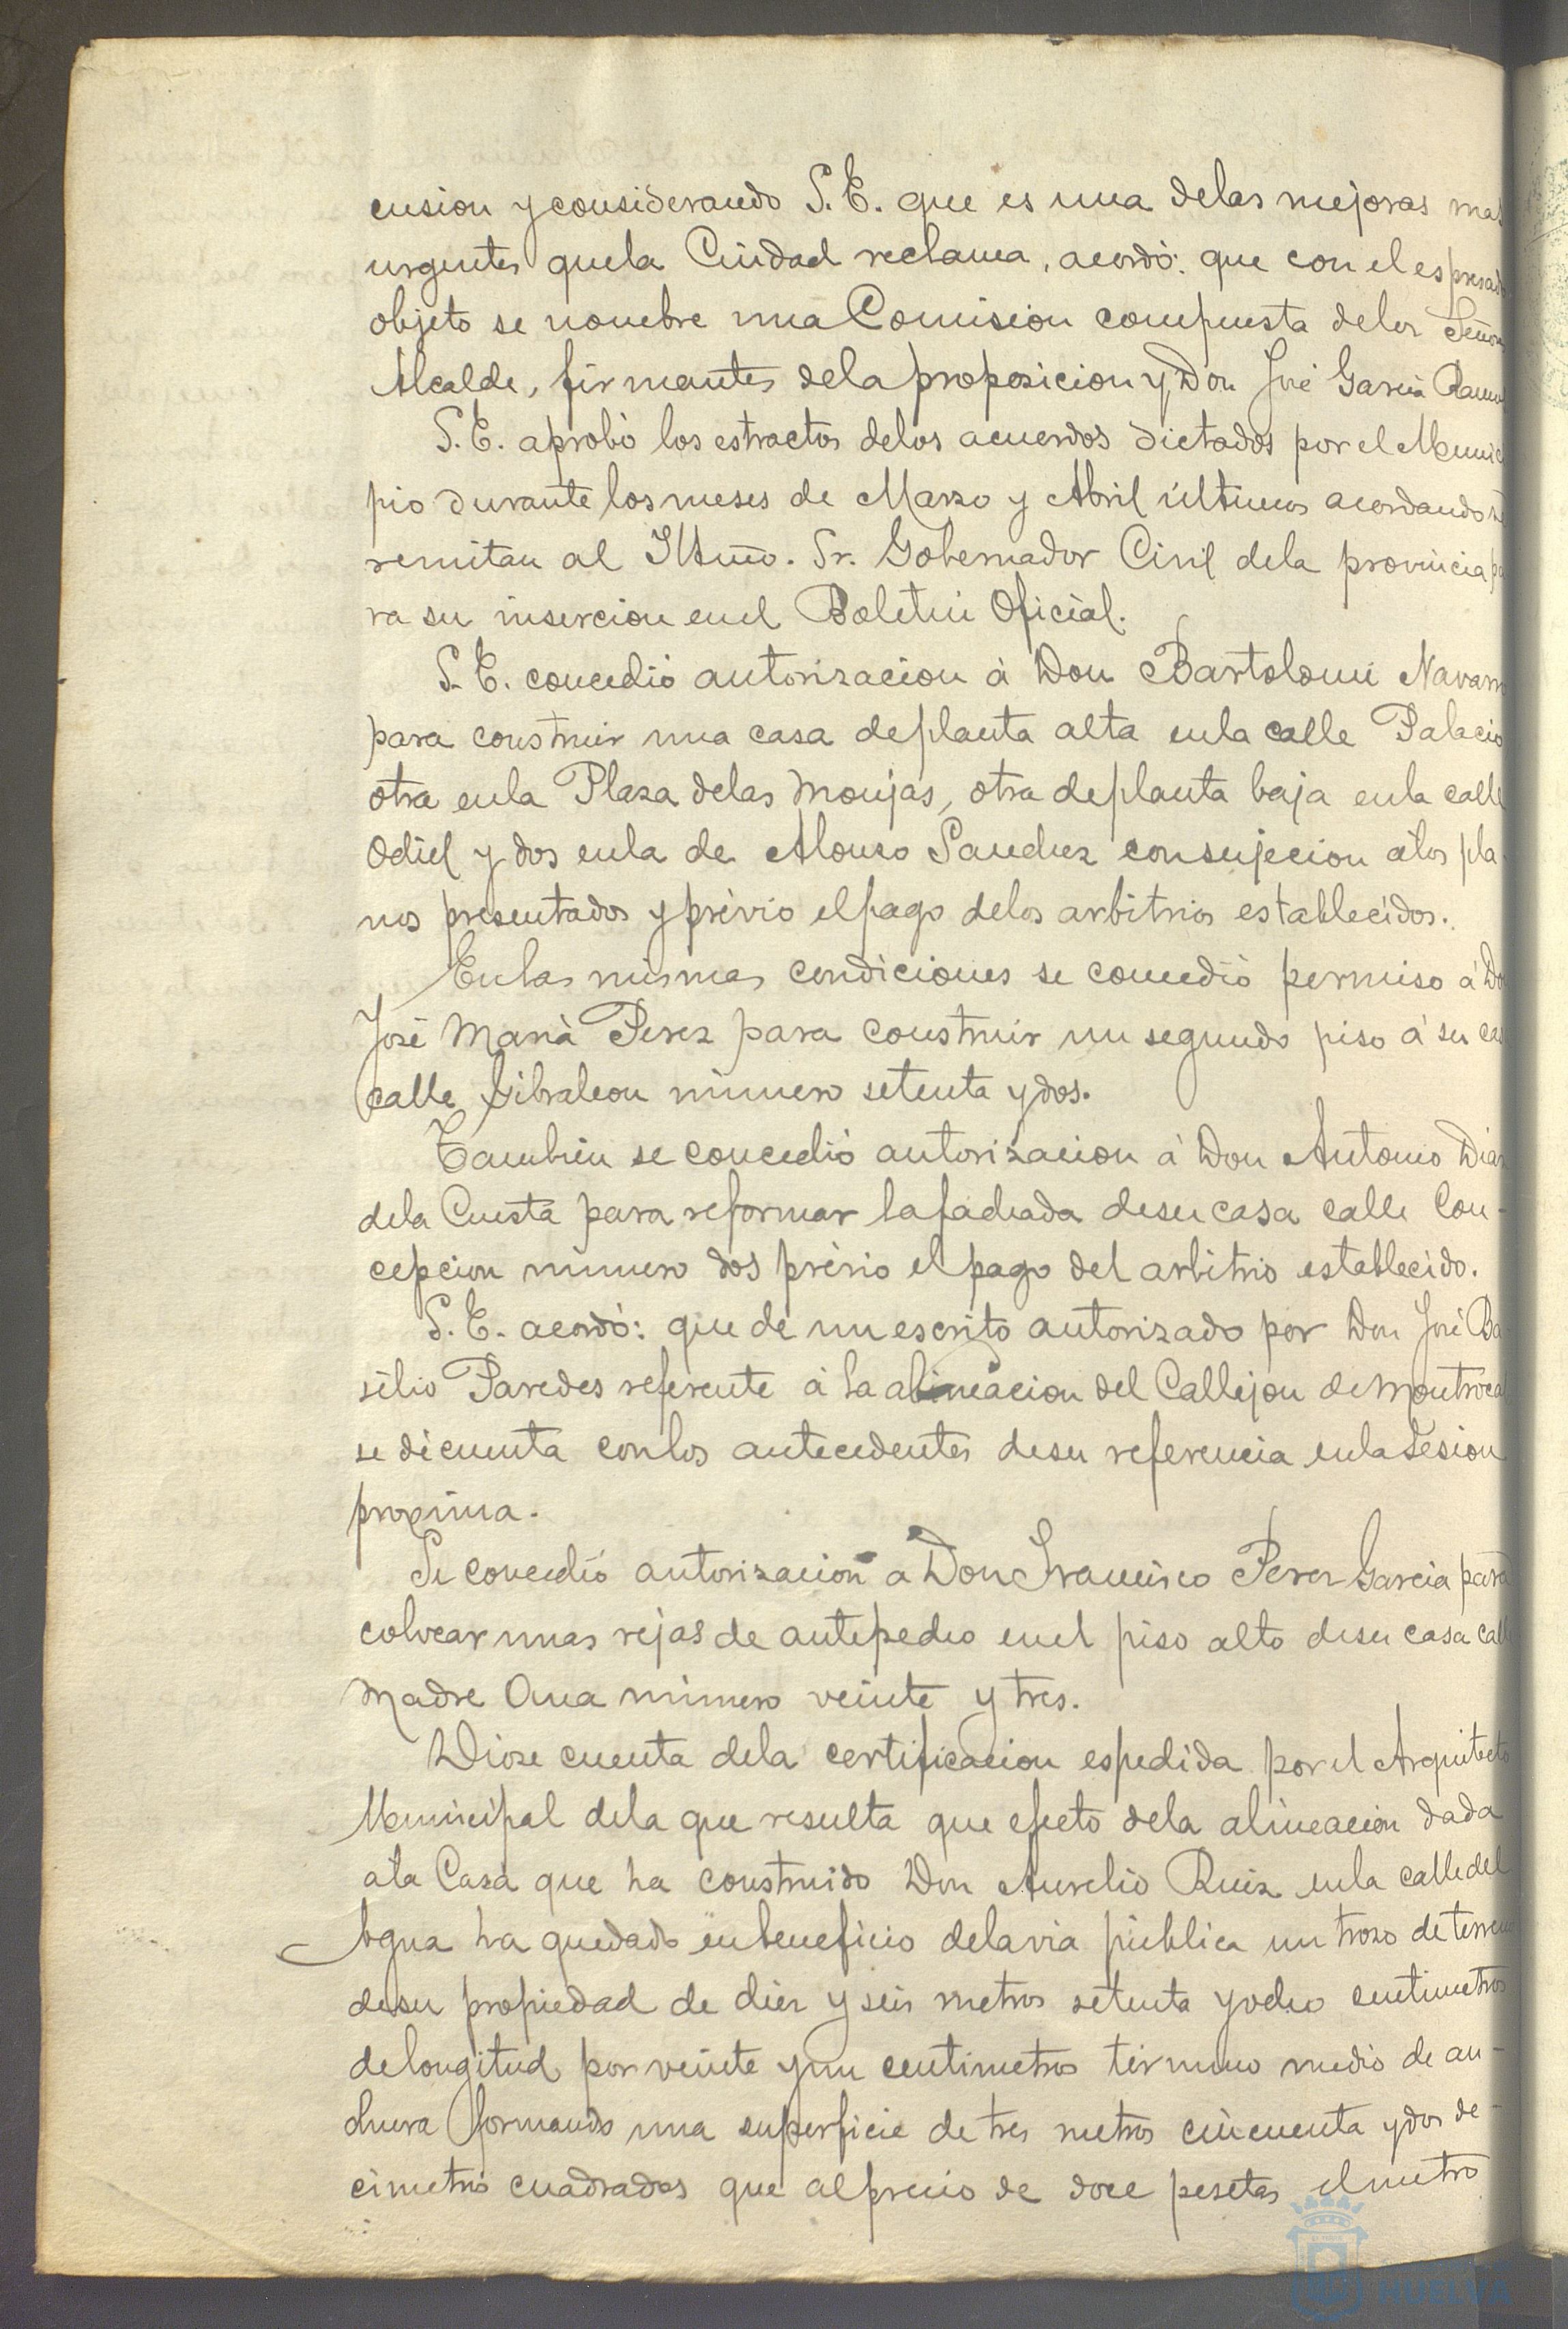 cusion y considerando S. E. que es una delas mejoras mas
urgentes quela Ciudad reclama, acordó: que con el espresado
objeto se nombre una Comision compuesta delos Señores
Alcalde, firmantes dela proposicion y Don José Garcia Ramos
S. E. aprobó los estractos delos acuerdos dictados por el Munici
pio durante los meses de Marzo y Abril últimos acordando se
remitan al Iltmo. Sr. Gobernador Civil dela provincia pa
ra su insercion enel Boletin Oficial.
S. E. concedió autorizacion á Don Bartolomé Navarro
para construir una casa deplanta alta enla calle Palacio
otra enla Plaza delas Monjas, otra deplanta baja enla calle
Odiel y dos enla de Alonso Sanchez consujecion alos pla-
nos presentados y prévio elpago delos arbitrios establecidos.
Enlas mismas condiciones se concedió permiso á Don
José Maria Perez para construir un segundo piso á su casa
calle Gibraleon número setenta ydos.
Tambien se concedió autorizacion á Don Antonio Diaz
dela Cuesta para reformar lafachada desu casa calle Con-
cepcion número dos prévio el pago del arbitrio establecido.
S. E. acordó: que de un escrito autorizado por Don José Ba
silio Paredes referente á la alineacion del Callejon de Montrocal
se dé cuenta conlos antecedentes desu referencia enla Sesion
proxima.
Se concedió autorizacion a Don Francisco Perez Garcia para
colocar unas rejas de antepecho enel piso alto desu casa calle
Madre Ana número veinte y tres.
Diose cuenta dela certificacion espedida por el Arquitecto
Municipal dela que resulta que efecto dela alineacion dada
ala Casa que ha construido Don Aurelio Ruiz enla calle del
Agua ha quedado enbeneficio delavia pública un trozo de terreno
desu propiedad de diez y seis metros setenta yocho centimetros
delongitud por veinte yun centimetros término medio de an-
chura formando una superficie de tres metros cincuenta ydos de-
cimetros cuadrados que alprecio de doce pesetas elmetro
HUELVA